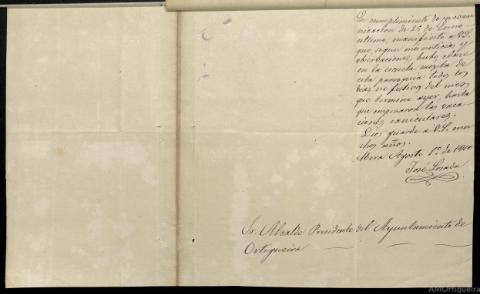 En cumplimiento de su comu-
nicacion de 25 de Junio
último, manifiesto a V.S.
que, segun mis noticias y
observaciones, hubo clase
en la escuela mixta de
esta parroquia todos los
dias no festivos del mes
que termina ayer, hasta
que empezaron las vaca-
ciones caniculares.
Dios guarde a V.S. mu-
chos años.
Mera Agosto 1º de
José Losada
Sr. Alcalde Presidente del Ayuntamiento de
Ortigueira
AMOrtigueira